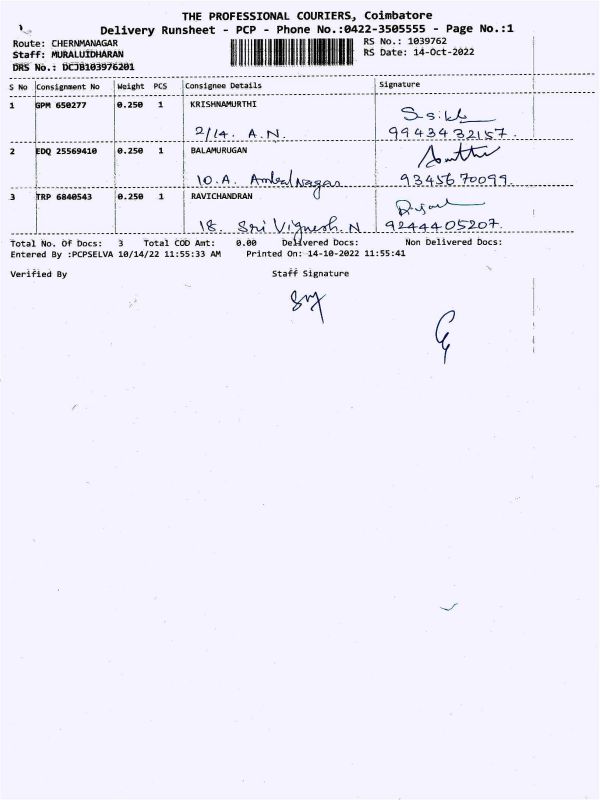 THE PROFESSIONAL COURIERS, Coimbatore
Delivery Runsheet - PCP - Phone No.:0422-3505555 - Page No.:1
Route: CHERNMANAGAR RS No.: 1039762
Staff: MURALUIDHARAN RS Date: 14-Oct-2022
DRS No.: DCJB103976201
S No Consignment No Weight PCS Consignee Details Signature
1 GPM 650277 0.250 1 KRISHNAMURTHI
2/14. A.N. 9943432157.
2 EDQ 25569410 0.250 1 BALAMURUGAN
10.A. Ambal Nagar 9345670099.
3 TRP 6840543 0.250 1 RAVICHANDRAN
18. Sri Vignesh.N 9244405207.
Total No. Of Docs: 3 Total COD Amt: 0.00 Delivered Docs: Non Delivered Docs:
Entered By :PCPSELVA 10/14/22 11:55:33 AM Printed On: 14-10-2022 11:55:41
Verified By Staff Signature